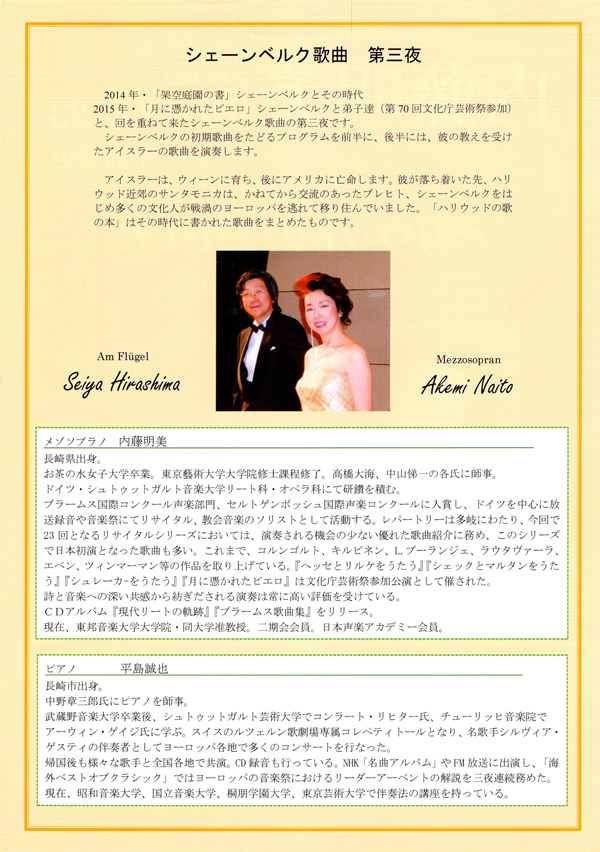 シェーンベルク歌曲　第三夜
2014年・「架空庭園の書」シェーンベルクとその時代
2015年・「月に憑かれたピエロ」シェーンベルクと弟子達（第70回文化庁芸術祭参加）
と、回を重ねて来たシェーンベルク歌曲の第三夜です。
シェーンベルクの初期歌曲をたどるプログラムを前半に、後半には、彼の教えを受け
たアイスラーの歌曲を演奏します。
アイスラーは、ウィーンに育ち、後にアメリカに亡命します。彼が落ち着いた先、ハリ
ウッド近郊のサンタモニカは、かねてから交流のあったブレヒト、シェーンベルクをは
じめ多くの文化人が戦渦のヨーロッパを逃れて移り住んでいました。「ハリウッドの歌
の本」はその時代に書かれた歌曲をまとめたものです。
Am Flügel
Seiya Hirashima
Mezzosopran
Akemi Naito
メゾソプラノ　内藤明美
長崎県出身。
お茶の水女子大学卒業。東京藝術大学大学院修士課程修了。高橋大海、中山悌一の各氏に師事。
ドイツ・シュトゥットガルト音楽大学リート科・オペラ科にて研鑽を積む。
ブラームス国際コンクール声楽部門、セルトゲンボッシュ国際声楽コンクールに入賞し、ドイツを中心に放
送録音や音楽祭にてリサイタル、教会音楽のソリストとして活動する。レパートリーは多岐にわたり、今回で
23回となるリサイタルシリーズにおいては、演奏される機会の少ない優れた歌曲紹介に務め、このシリーズ
で日本初演となった歌曲も多い。これまで、コルンゴルト、キルピネン、L.ブーランジェ、ラウタヴァーラ、
エベン、ツィンマーマン等の作品を取り上げている。『ヘッセとリルケをうたう』『シェックとマルタンをうた
う』『シュレーカーをうたう』『月に憑かれたピエロ』は文化庁芸術祭参加公演として催された。
詩と音楽への深い共感から紡ぎだされる演奏は常に高い評価を受けている。
ＣＤアルバム『現代リートの軌跡』『ブラームス歌曲集』をリリース。
現在、東邦音楽大学大学院・同大学准教授。二期会会員。日本声楽アカデミー会員。
ピアノ　平島誠也
長崎市出身。
中野章三郎氏にピアノを師事。
武蔵野音楽大学卒業後、シュトゥットガルト芸術大学でコンラート・リヒター氏、チューリッヒ音楽院で
アーウィン・ゲイジ氏に学ぶ。スイスのルツェルン歌劇場専属コレペティトールとなり、名歌手シルヴィア・
ゲスティの伴奏者としてヨーロッパ各地で多くのコンサートを行なった。
帰国後も様々な歌手と全国各地で共演。CD録音も行っている。NHK「名曲アルバム」やFM放送に出演し、「海
外ベストオブクラシック」ではヨーロッパの音楽祭におけるリーダーアーベントの解説を三夜連続務めた。
現在、昭和音楽大学、国立音楽大学、桐朋学園大学、東京芸術大学で伴奏法の講座を持っている。